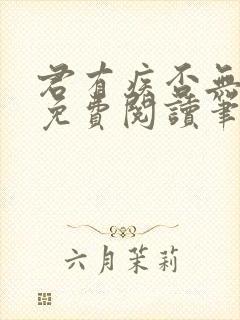 君有疾否無
免費閱讀筆
六月茉莉